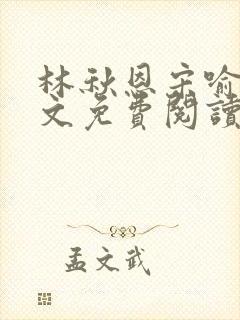 林秋恩宋喻
文免費閱讀
孟文武